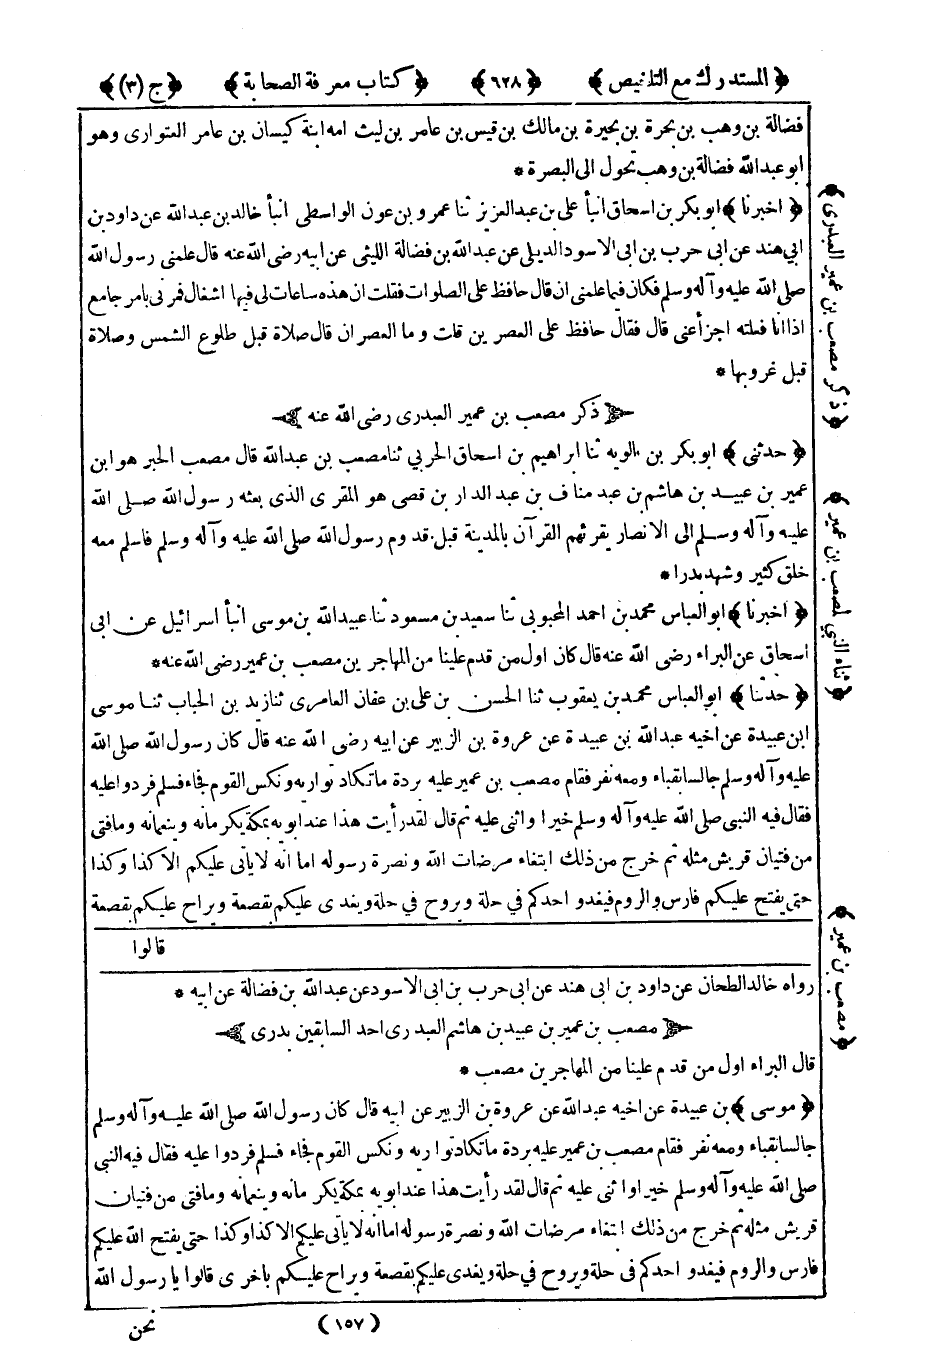 ﴿ المستدرك مع التلخيص ﴾ ﴿ ٦٢٨ ﴾ ﴿ كتاب معرفة الصحابة ﴾ ﴿ ج (٣) ﴾
فضالة بن وهب بن بحرة بن بحيرة بن مالك بن قيس بن عامر بن ليث امه ابنة كيسان بن عامر العتوارى وهو
ابو عبدالله فضالة بن وهب تحول الى البصرة *
﴿ اخبرنا ﴾ ابو بكر بن اسحاق انبأ على بن عبدالعزيز ثنا عمرو بن عون الواسطى انبأ خالد بن عبدالله عن داود بن
ابي هند عن ابى حرب بن ابى الاسود الديلى عن عبدالله بن فضالة الليثى عن ابيه رضى الله عنه قال علمنى رسول الله
صلى الله عليه وآله وسلم فكان فيما علمنى ان قال حافظ على الصلوات فقلت ان هذه ساعات لى فيها اشغال فمرنى بامر جامع
اذا انا فعلته اجزأ عنى قال فقال حافظ على العصرين قلت وما العصران قال صلاة قبل طلوع الشمس وصلاة
قبل غروبها *
ذكر مصعب بن عمير العبدرى رضى الله عنه
﴿ حدثنى ﴾ ابو بكر بن بالويه ثنا ابراهيم بن اسحاق الحربى ثنا مصعب بن عبدالله قال مصعب الحبر هو ابن
عمير بن عبيد بن هاشم بن عبد مناف بن عبد الدار بن قصى هو المقرى الذى بعثه رسول الله صلى الله
عليه وآله وسلم الى الانصار يقرئهم القرآن بالمدينة قبل قدوم رسول الله صلى الله عليه وآله وسلم فاسلم معه
خلق كثير وشهد بدرا *
﴿ اخبرنا ﴾ ابو العباس محمد بن احمد المحبوبى ثنا سعيد بن مسعود ثنا عبيدالله بن موسى انبأ اسرائيل عن ابى
اسحاق عن البراء رضى الله عنه قال كان اول من قدم علينا من المهاجرين مصعب بن عمير رضى الله عنه *
﴿ حدثنا ﴾ ابو العباس محمد بن يعقوب ثنا الحسن بن على بن عفان العامرى ثنا زيد بن الحباب ثنا موسى
ابن عبيدة عن اخيه عبدالله بن عبيدة عن عروة بن الزبير عن ابيه رضى الله عنه قال كان رسول الله صلى الله
عليه وآله وسلم جالسا بقباء ومعه نفر فقام مصعب بن عمير عليه بردة ما تكاد تواريه ونكس القوم فجاء فسلم فردوا عليه
فقال فيه النبى صلى الله عليه وآله وسلم خيرا واثنى عليه ثم قال لقد رأيت هذا عند ابويه بمكة يكرمانه وينعمانه وما فتى
من فتيان قريش مثله ثم خرج من ذلك ابتغاء مرضات الله ونصرة رسوله اما انه لا يأتى عليكم الا كذا وكذا
حتى يفتح عليكم فارس والروم فيغدو احدكم في حلة ويروح في حلة ويغدى عليكم بقصعة ويراح عليكم بقصعة
قالوا
رواه خالد الطحان عن داود بن ابى هند عن ابى حرب بن ابى الاسود عن عبدالله بن فضالة عن ابيه *
مصعب بن عمير بن عبيد بن هاشم العبدرى احد السابقين بدرى
قال البراء اول من قدم علينا من المهاجرين مصعب *
﴿ موسى ﴾ بن عبيدة عن اخيه عبدالله عن عروة بن الزبير عن ابيه قال كان رسول الله صلى الله عليه وآله وسلم
جالسا بقباء ومعه نفر فقام مصعب بن عمير عليه بردة ما تكاد تواريه ونكس القوم فجاء فسلم فردوا عليه فقال فيه النبى
صلى الله عليه وآله وسلم خيرا واثنى عليه ثم قال لقد رأيت هذا عند ابويه بمكة يكرمانه وينعمانه وما فتى من فتيان
قريش مثله ثم خرج من ذلك ابتغاء مرضات الله ونصرة رسوله اما انه لا يأتى عليكم الا كذا وكذا حتى يفتح الله عليكم
فارس والروم فيغدو احدكم فى حلة ويروح في حلة ويغدى عليكم بقصعة ويراح عليكم باخرى قالوا يا رسول الله
(١٥٧)
نحن
﴿ ذكر مصعب بن عمير العبدرى ﴾
﴿ ثناء النبي لمصعب بن عمير ﴾
﴿ مصعب بن عمير ﴾